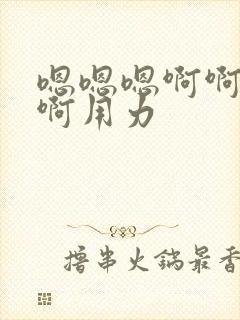 嗯嗯嗯啊啊
啊用力
撸串火锅最香